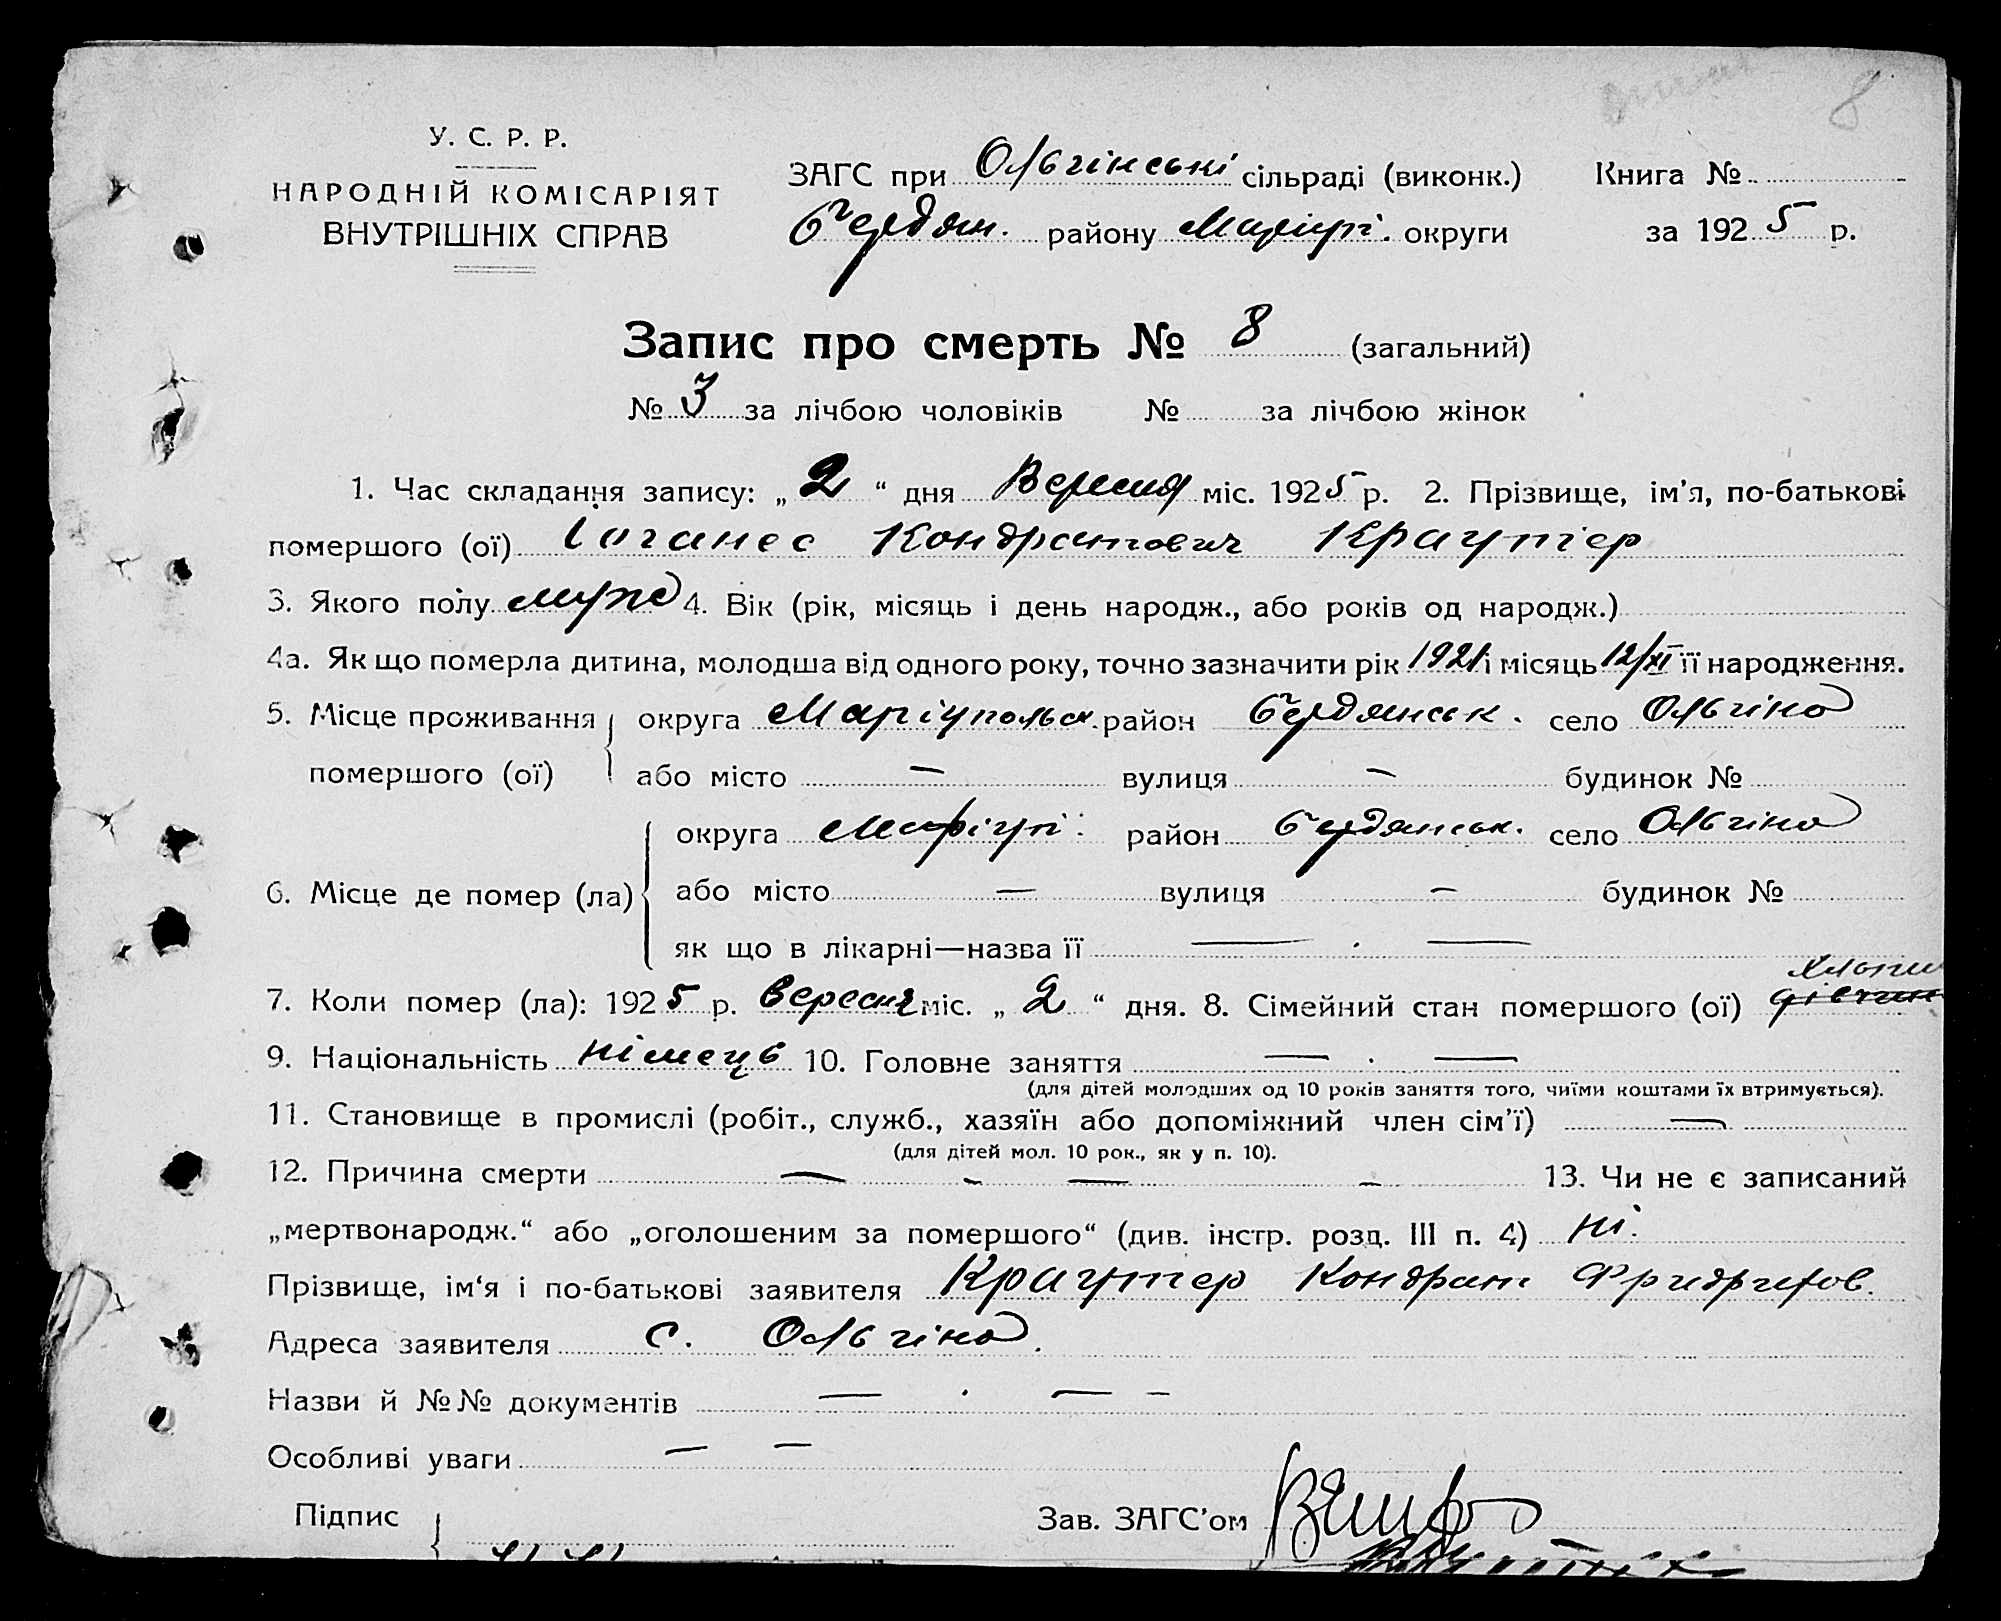 8
У. С. Р. Р.
НАРОДНІЙ КОМІСАРІЯТ
ВНУТРІШНІХ СПРАВ
ЗАГС при Ольгінські сільраді (виконк.) Книга №
Бердян. району Маріуп. округи за 1925 р.
Запис про смерть № 8 (загальний)
№ 3 за лічбою чоловіків № за лічбою жінок
1. Час складання запису: „ 2 “ дня Вересня міс. 1925 р. 2. Прізвище, ім'я, по-батькові
помершого (ої) Іоганес Кондратович Краутер
3. Якого полу муж 4. Вік (рік, місяць і день народж., або років од народж.)
4а. Як що померла дитина, молодша від одного року, точно зазначити рік 1921 і місяць 12/XI її народження.
5. Місце проживання округа Маріупольск. район Бердянськ. село Ольгіно
помершого (ої) або місто — вулиця — будинок №
округа Маріуп. район Бердянськ. село Ольгіно
6. Місце де помер (ла) або місто — вулиця — будинок №
як що в лікарні—назва її — . —
7. Коли помер (ла): 1925 р. вересня міс. „ 2 “ дня. 8. Сімейний стан помершого (ої) дівчин
9. Національність німець 10. Головне заняття — . —
(для дітей молодших од 10 років заняття того, чиїми коштами їх втримується).
11. Становище в промислі (робіт., служб., хазяїн або допоміжний член сім'ї) —
(для дітей мол. 10 рок., як у п. 10).
12. Причина смерти — - — - 13. Чи не є записаний
„мертвонародж.“ або „оголошеним за помершого“ (див. інстр. розд. III п. 4) ні.
Прізвище, ім‘я і по-батькові заявителя Краутер Кондрат Фридрихов.
Адреса заявителя с. Ольгіно.
Назви й №№ документів — . — -
Особливі уваги — —
Підпис Зав. ЗАГС'ом